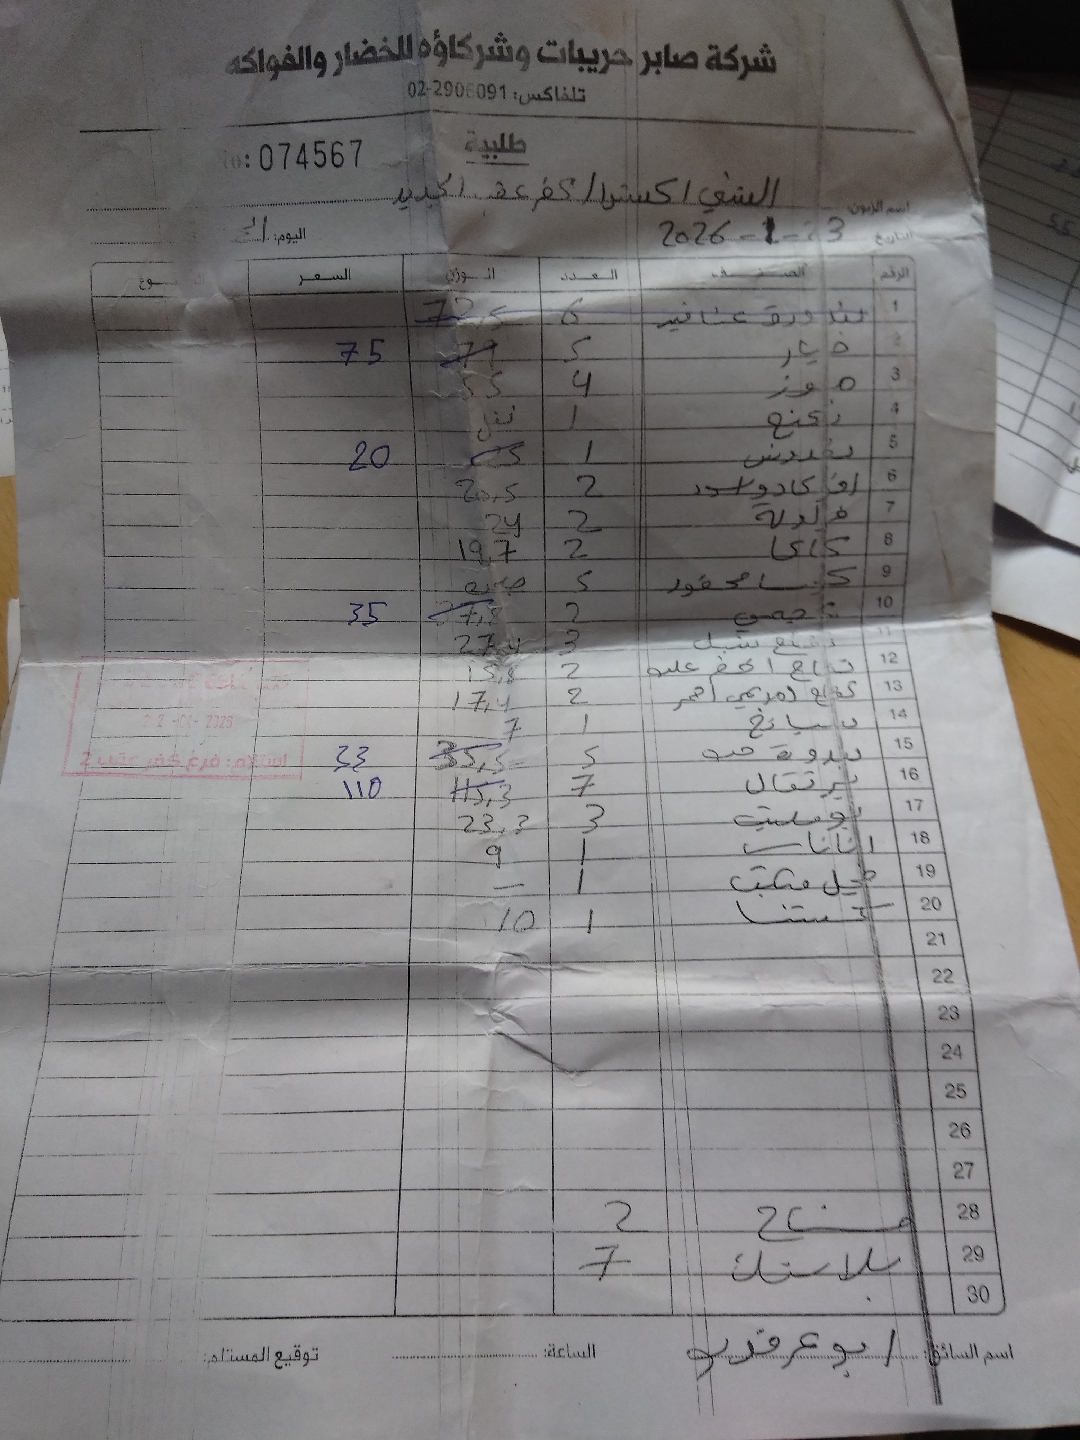 شركة صابر حريبات وشركاؤه للخضار والفواكه
تلفاكس: 02-2906091
طلبية
No: 074567
اسم الزبون: الشني اكسترا / كفر عقب الجديد
التاريخ 23-1-2026 اليوم:
الرقم الصنف العدد الوزن السعر
1 بندورة عناقيد 6 72,5
2 خيار 5 79 75
3 موز 4 55
4 نعنع 1
5 بقدونس 1 25 20
6 افوكادو اسود 2 20,5
7 فراولة 2 24
8 كاكا 2 19,7
9 كوسا محفور 5
10 2 27,8 35
11 تفاح سكري 3 27,4
12 تفاح اخضر 2 15,8
13 تفاح امريكي احمر 2 17,4
14 سبانخ 1 7
15 بندورة حب 5 35,5 33
16 برتقال 7 115,3 110
17 بوملي 3 23,3
18 اناناس 1 9
19 1 —
20 كستنا 1 10
21
22
23
24
25
26
27
28 مشتاح 2
29 بلاستك 7
30
22-01-2026
استلام: فرع كفر عقب 2
اسم السائق: الساعة: توقيع المستلم: